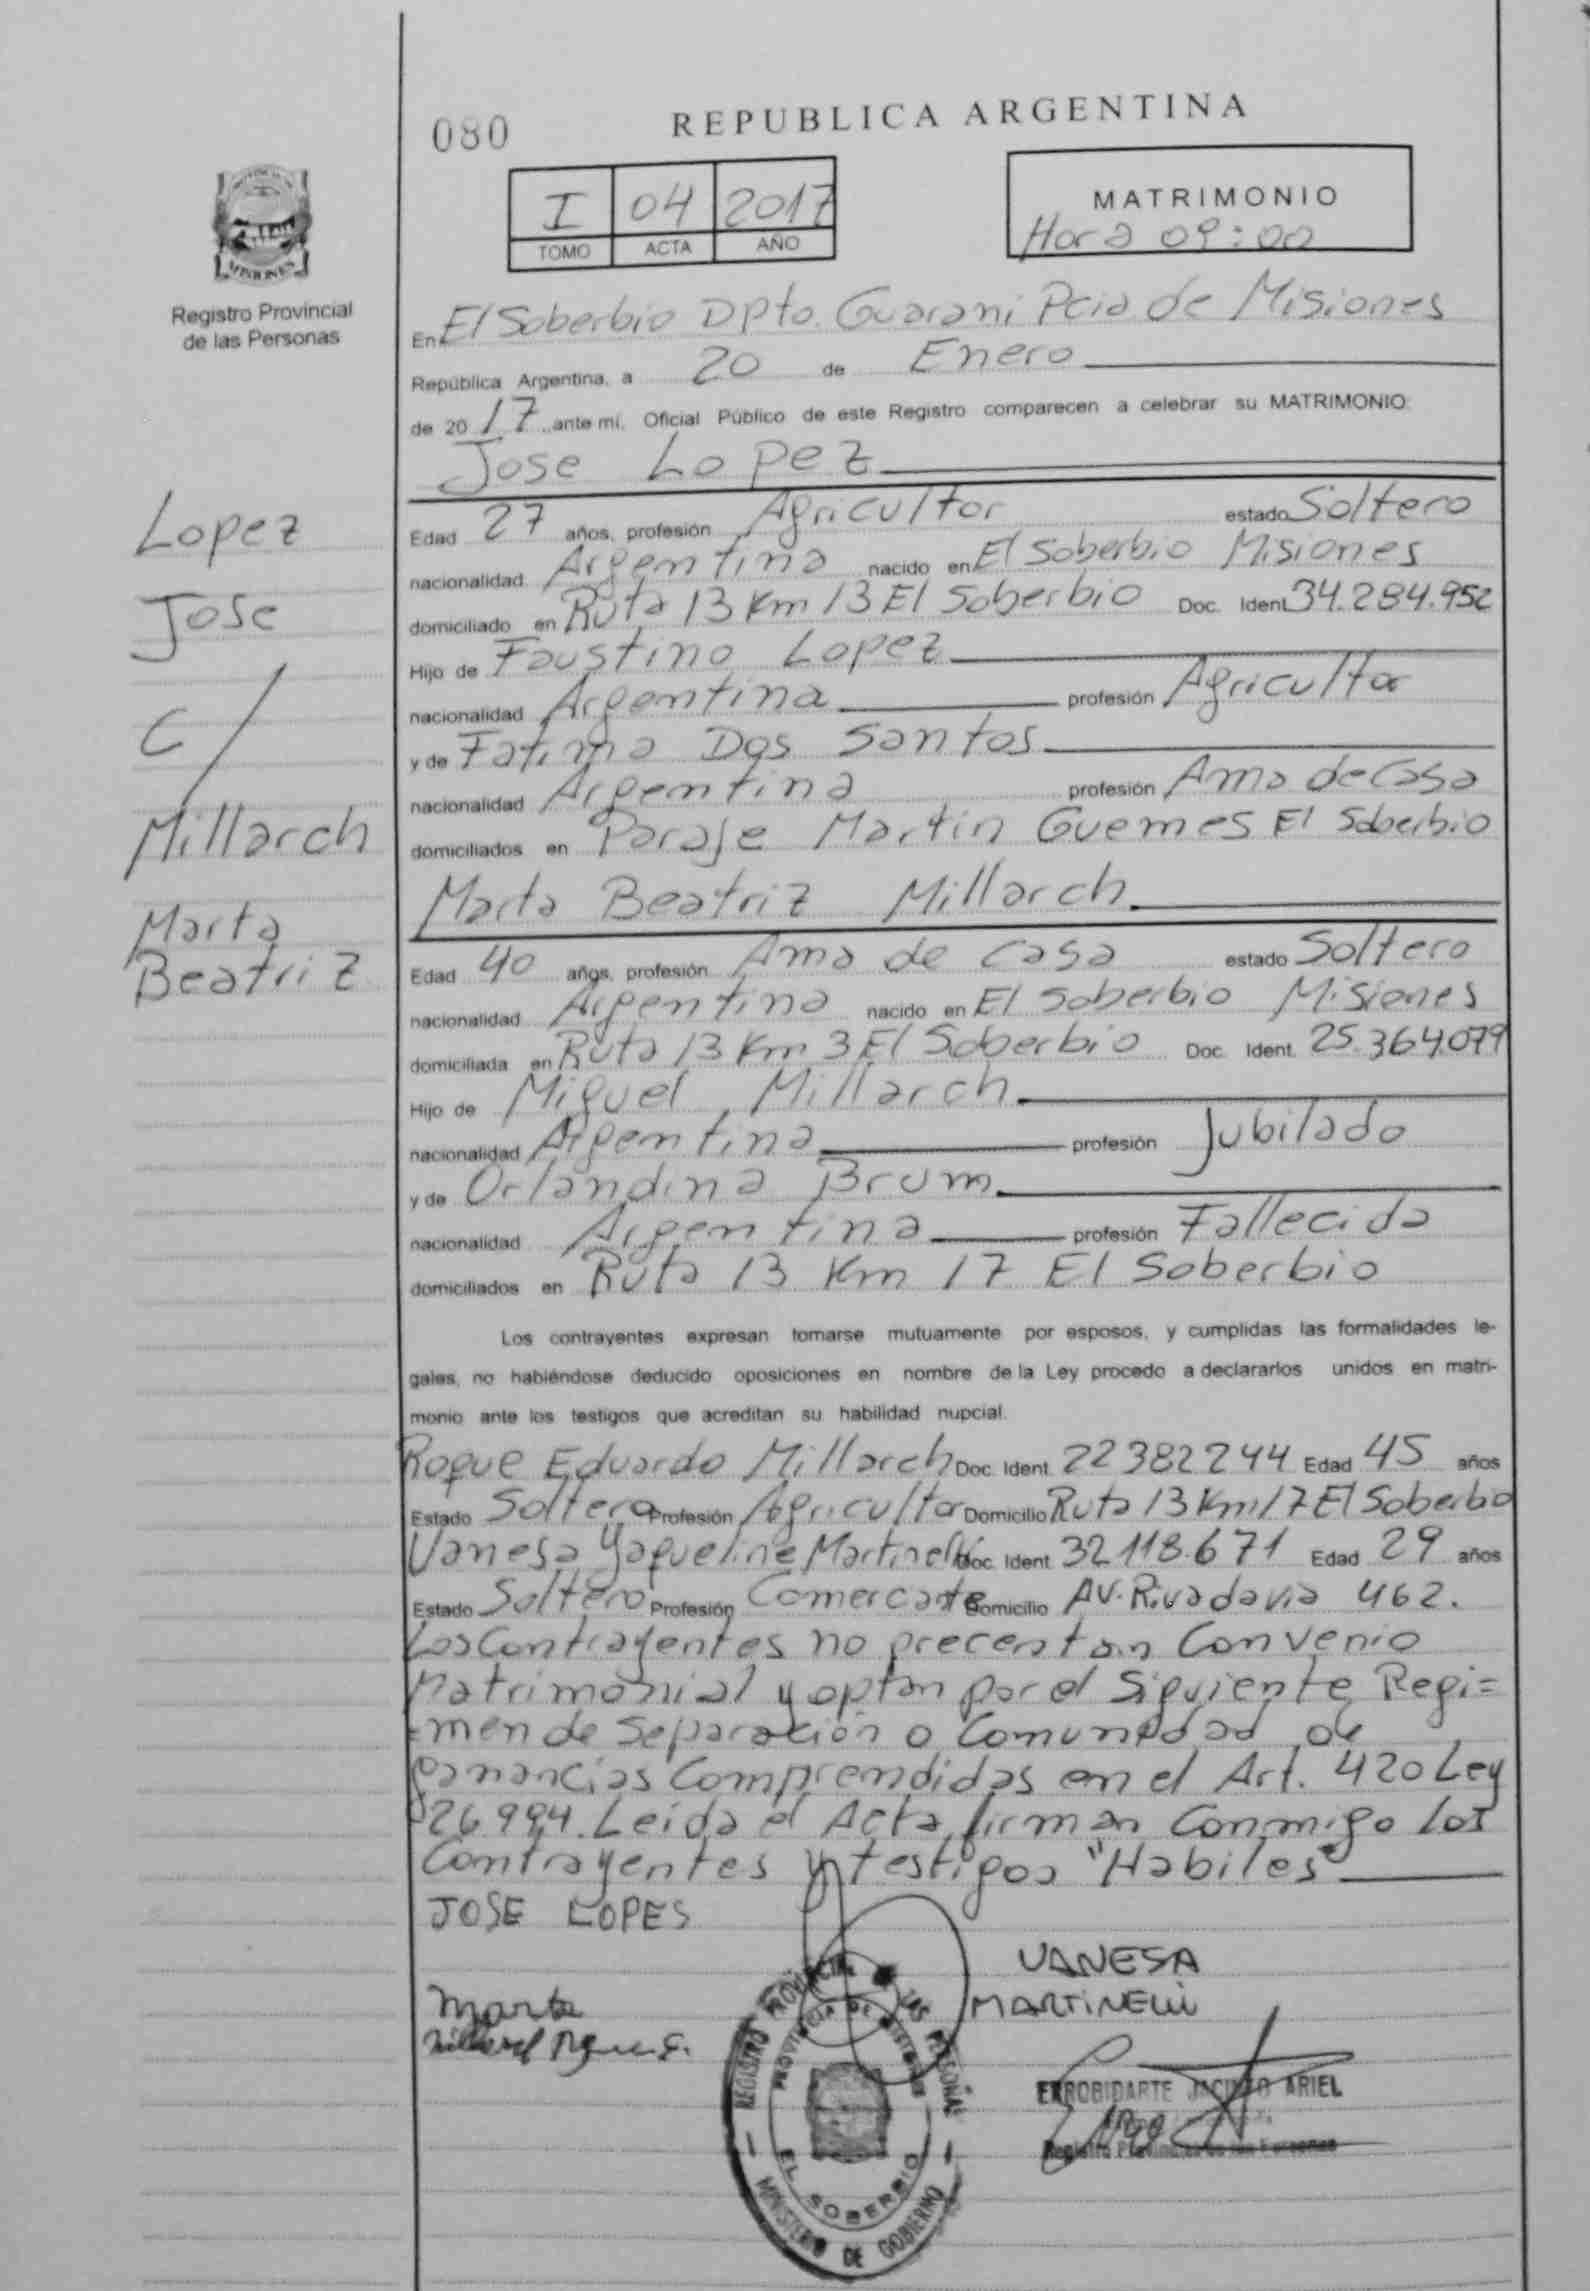 080
REPUBLICA ARGENTINA
I 04 2017
TOMO ACTA AÑO
MATRIMONIO
Hora 09:00
MISIONES
Registro Provincial
de las Personas
En El Soberbio Dpto. Guarani Pcia de Misiones
República Argentina, a 20 de Enero
de 20 17 ante mí, Oficial Público de este Registro comparecen a celebrar su MATRIMONIO:
Jose Lopez
Lopez
Jose
c/
Millarch
Marta
Beatriz
Edad 27 años, profesión Agricultor estado Soltero
nacionalidad Argentina nacido en El Soberbio Misiones
domiciliado en Ruta 13 Km 13 El Soberbio Doc. Ident. 34.284.952
Hijo de Faustino Lopez
nacionalidad Argentina profesión Agricultor
y de Fatima Dos Santos
nacionalidad Argentina profesión Ama de Casa
domiciliados en Paraje Martin Guemes El Soberbio
Marta Beatriz Millarch
Edad 40 años, profesión Ama de Casa estado Soltero
nacionalidad Argentina nacido en El Soberbio Misiones
domiciliada en Ruta 13 Km 3 El Soberbio Doc. Ident. 25.364.079
Hijo de Miguel Millarch
nacionalidad Argentina profesión Jubilado
y de Orlandina Brum
nacionalidad Argentina profesión Fallecida
domiciliados en Ruta 13 Km 17 El Soberbio
Los contrayentes expresan tomarse mutuamente por esposos, y cumplidas las formalidades le-
gales, no habiéndose deducido oposiciones en nombre de la Ley procedo a declararlos unidos en matri-
monio ante los testigos que acreditan su habilidad nupcial.
Roque Eduardo Millarch Doc. Ident. 22382244 Edad 45 años
Estado Soltero Profesión Agricultor Domicilio Ruta 13 Km 17 El Soberbio
Vanesa Yaqueline Martinelli Doc. Ident. 32.118.671 Edad 29 años
Estado Soltero Profesión Domicilio AV. Rivadavia 462.
Los Contrayentes no precentan Convenio
Matrimonial y optan por el Siguiente Regi=
=men de Separación o Comunidad de
ganancias Comprendidas en el Art. 420 Ley
26994. Leída el Acta firman Conmigo los
Contrayentes y testigos "Habiles"
JOSE LOPES
VANESA
MARTINELLI
Marta
REGISTRO PROVINCIAL DE LAS PERSONAS
PROVINCIA DE MISIONES
EL SOBERBIO
MINISTERIO DE GOBIERNO
ERROBIDARTE JACINTO ARIEL
Registro Provincial de las Personas